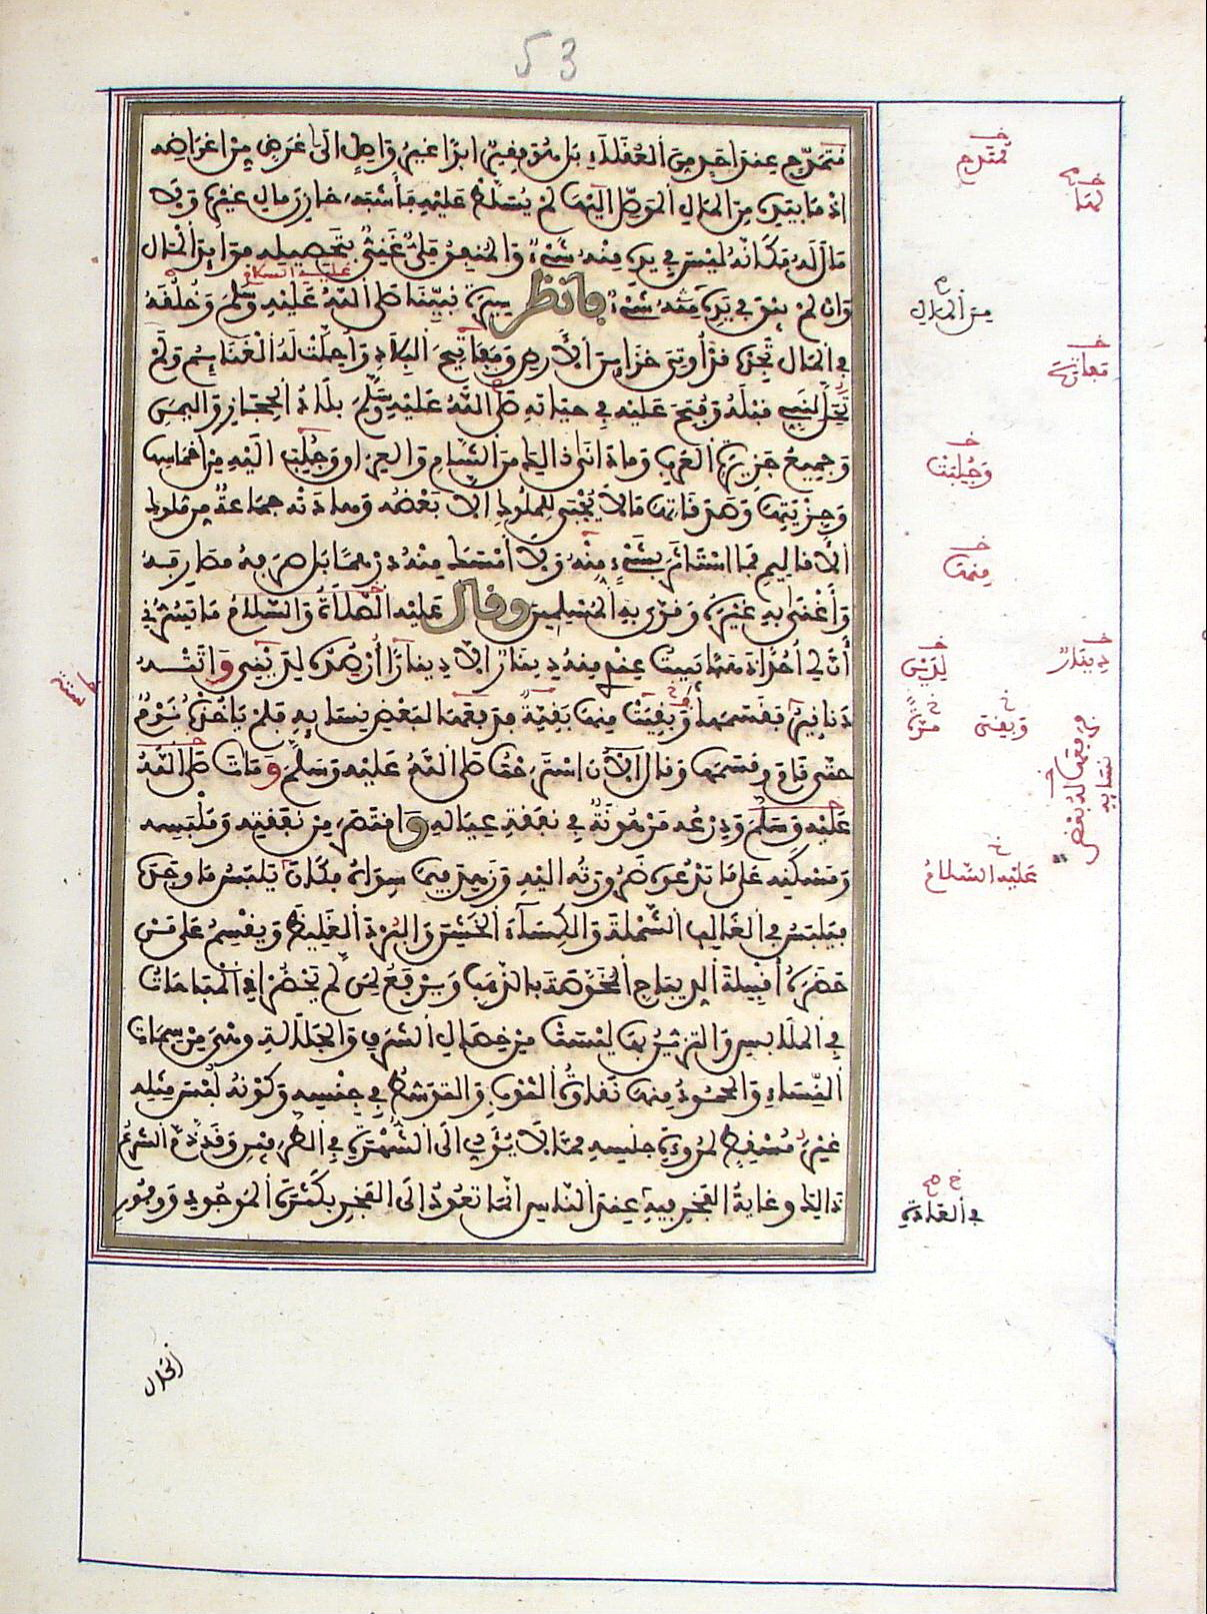 53
مُتَمَدَّحٍ عِنْدَ أَحَدٍ مِنَ الْعُقَلَاءِ بَلْ هُوَ فَقِيرٌ أَبَدًا غَيْرُ وَاصِلٍ إِلَى غَرَضٍ مِنْ أَغْرَاضِهِ
إِذْ مَا بِيَدِهِ مِنَ الْمَالِ الْمُوَصِّلِ إِلَيْهَا لَمْ يُسَلَّطْ عَلَيْهِ فَأَشْبَهَ خَازِنَ مَالِ غَيْرِهِ وَلَا
مَالَ لَهُ فَكَأَنَّهُ لَيْسَ فِي يَدِهِ مِنْهُ شَيْءٌ وَالْمُنْفِقُ مَلِيٌّ غَنِيٌّ بِتَحْصِيلِهِ فَوَائِدَ الْمَالِ
وَإِنْ لَمْ يَبْقَ فِي يَدِهِ مِنْهُ شَيْءٌ فَانْظُرْ سِيرَةَ نَبِيِّنَا صَلَّى اللَّهُ عَلَيْهِ وَسَلَّمَ وَخُلُقَهُ
عليه السلام
فِي الْمَالِ تَجِدْهُ قَدْ أُوتِيَ خَزَائِنَ الْأَرْضِ وَمَفَاتِيحَ الْبِلَادِ وَأُحِلَّتْ لَهُ الْغَنَائِمُ وَلَمْ
تَحِلَّ لِنَبِيٍّ قَبْلَهُ وَفُتِحَ عَلَيْهِ فِي حَيَاتِهِ صَلَّى اللَّهُ عَلَيْهِ وَسَلَّمَ بِلَادُ الْحِجَازِ وَالْيَمَنِ
وَجَمِيعُ جَزِيرَةِ الْعَرَبِ وَمَا دَانَى ذَلِكَ مِنَ الشَّامِ وَالْعِرَاقِ وَجُلِبَ إِلَيْهِ مِنْ أَخْمَاسِهَا
وَجِزْيَتِهَا وَصَدَقَاتِهَا مَا لَا يُجْبَى لِلْمُلُوكِ إِلَّا بَعْضُهُ وَهَادَتْهُ جَمَاعَةٌ مِنْ مُلُوكِ
الْأَقَالِيمِ فَمَا اسْتَأْثَرَ بِشَيْءٍ مِنْهُ وَلَا أَمْسَكَ مِنْهُ دِرْهَمًا بَلْ صَرَفَهُ مَصَارِفَهُ
وَأَغْنَى بِهِ غَيْرَهُ وَقَوَّى بِهِ الْمُسْلِمِينَ وَقَالَ عَلَيْهِ الصَّلَاةُ وَالسَّلَامُ مَا يَسُرُّنِي
أَنَّ لِي أُحُدًا ذَهَبًا يَبِيتُ عِنْدِي مِنْهُ دِينَارٌ إِلَّا دِينَارًا أَرْصُدُهُ لِدَيْنِي وَأَتَتْهُ
دَنَانِيرُ فَقَسَمَهَا وَبَقِيَتْ مِنْهَا بَقِيَّةٌ فَدَفَعَهَا لِبَعْضِ نِسَائِهِ فَلَمْ يَأْخُذْهُ نَوْمٌ
حَتَّى قَامَ وَقَسَمَهَا وَقَالَ الْآنَ اسْتَرَحْتُ صَلَّى اللَّهُ عَلَيْهِ وَسَلَّمَ وَمَاتَ صَلَّى اللَّهُ
عَلَيْهِ وَسَلَّمَ وَدِرْعُهُ مَرْهُونَةٌ فِي نَفَقَةِ عِيَالِهِ وَاقْتَصَرَ مِنْ نَفَقَتِهِ وَمَلْبَسِهِ
وَمَسْكَنِهِ عَلَى مَا تَدْعُو ضَرُورَتُهُ إِلَيْهِ وَزَهِدَ فِيمَا سِوَاهُ فَكَانَ يَلْبَسُ مَا وَجَدَهُ
فَيَلْبَسُ فِي الْغَالِبِ الشَّمْلَةَ وَالْكِسَاءَ الْخَشِنَ وَالْبُرْدَ الْغَلِيظَ وَيَقْسِمُ عَلَى مَنْ
حَضَرَهُ أَقْبِيَةَ الدِّيبَاجِ الْمُخَوَّصَةَ بِالذَّهَبِ وَيَرْفَعُ لِمَنْ لَمْ يَحْضُرْ إِذِ الْمُبَاهَاتُ
فِي الْمَلَابِسِ وَالتَّزَيُّنُ بِهَا لَيْسَتْ مِنْ خِصَالِ الشَّرَفِ وَالْجَلَالَةِ وَهِيَ مِنْ سِمَاتِ
النِّسَاءِ وَالْمَحْمُودُ مِنْهَا نَقَاوَةُ الثَّوْبِ وَالتَّوَسُّطُ فِي جِنْسِهِ وَكَوْنُهُ لُبْسَ مِثْلِهِ
غَيْرَ مُسْقِطٍ لِمُرُوءَةِ جِنْسِهِ مِمَّا لَا يُؤَدِّي إِلَى الشُّهْرَةِ فِي الطَّرَفَيْنِ وَقَدْ ذَمَّ الشَّرْعُ
ذَلِكَ وَغَايَةُ الْفَخْرِ فِيهِ عِنْدَ النَّاسِ إِنَّمَا تَعُودُ إِلَى الْفَخْرِ بِكَثْرَةِ الْمَوْجُودِ وَوُفُورِ
مُمْتَدَحٍ
لَهَا
مِنَ الْمَالِ
مَفَاتِحَ
وَجُلِبَتْ
مِنْهَا
دِينَارٌ
لِدَيْنٍ
وَبَقِيَتْ
ستة
فرفعها لبعض
نسائه
عَلَيْهِ السَّلَامُ
فِي الْعَادَةِ
الحال